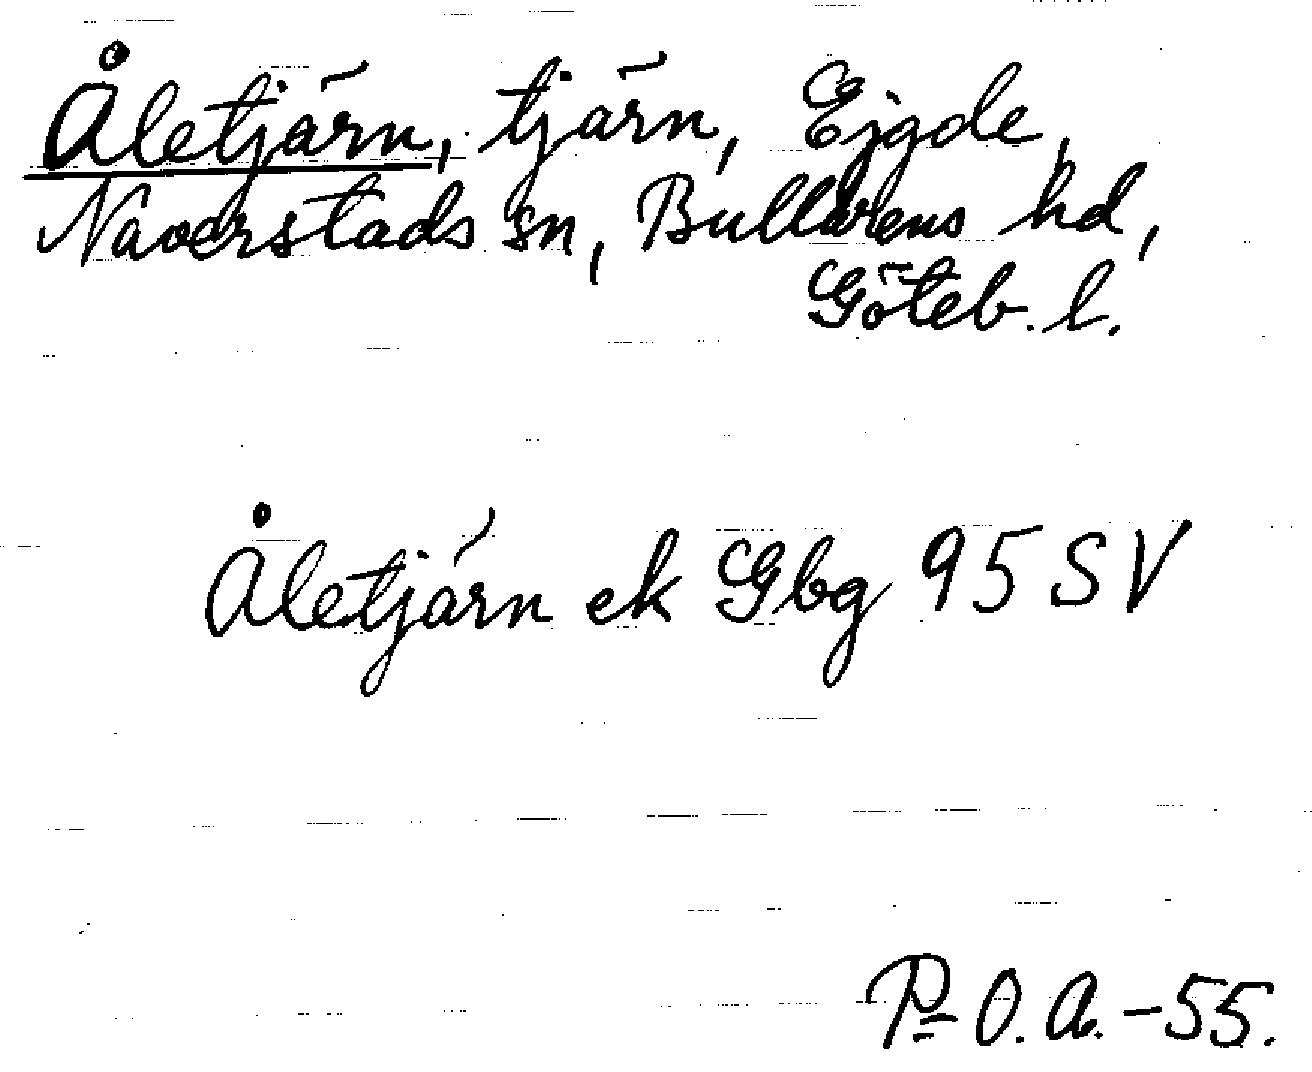 Åletjärn, tjärn, Ejgde,
Naverstads sn, Bullarens hd,
Göteb. l.
Åletjärn ek Gbg 95 SV
P-O. A. -55.